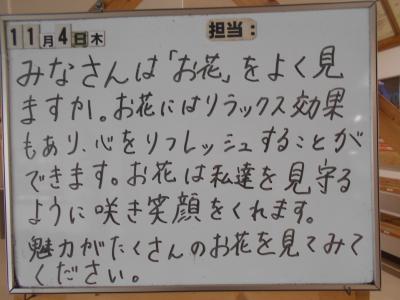 11月4日木 担当:
みなさんは「お花」をよく見
ますか。お花にはリラックス効果
もあり、心をリフレッシュすることが
できます。お花は私達を見守る
ように咲き笑顔をくれます。
魅力がたくさんのお花を見てみて
ください。